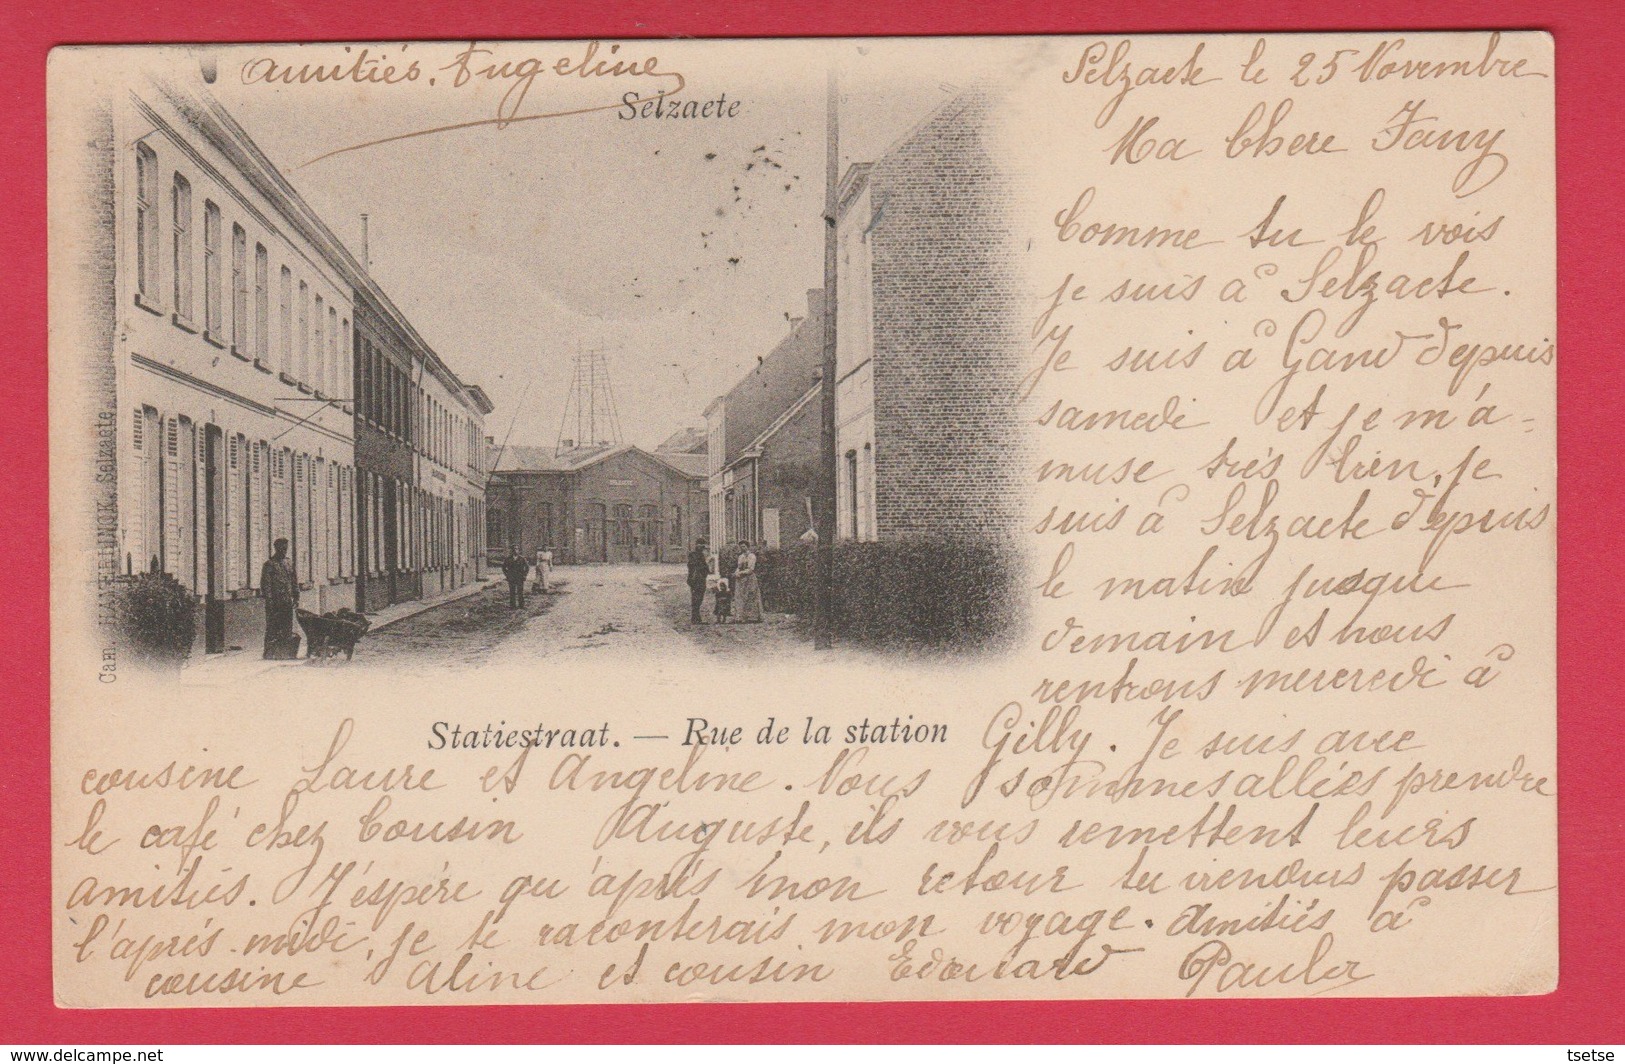 Amitiés. Angeline
Selzaete
Selzaete le 25 Novembre
Ma Chere Fany
Comme tu le vois
je suis à Selzaete.
Je suis à Gand depuis
samedi et je m'a-
muse trés bien, je
suis à Selzaete depuis
le matin jusque
demain et nous
rentrons mercredi à
Gilly. Je suis avec
cousine Laure et Angeline. Nous sommes allées prendre
le café chez Cousin Auguste, ils vous remettent leurs
amitiés. J'éspére qu'aprés mon retour tu viendras passer
l'aprés-midi, je te raconterais mon voyage. Amitiés à
cousine Aline et cousin Edouard Paula
Statiestraat. — Rue de la station
Cam. Selzaete
tsetse
www.delcampe.net